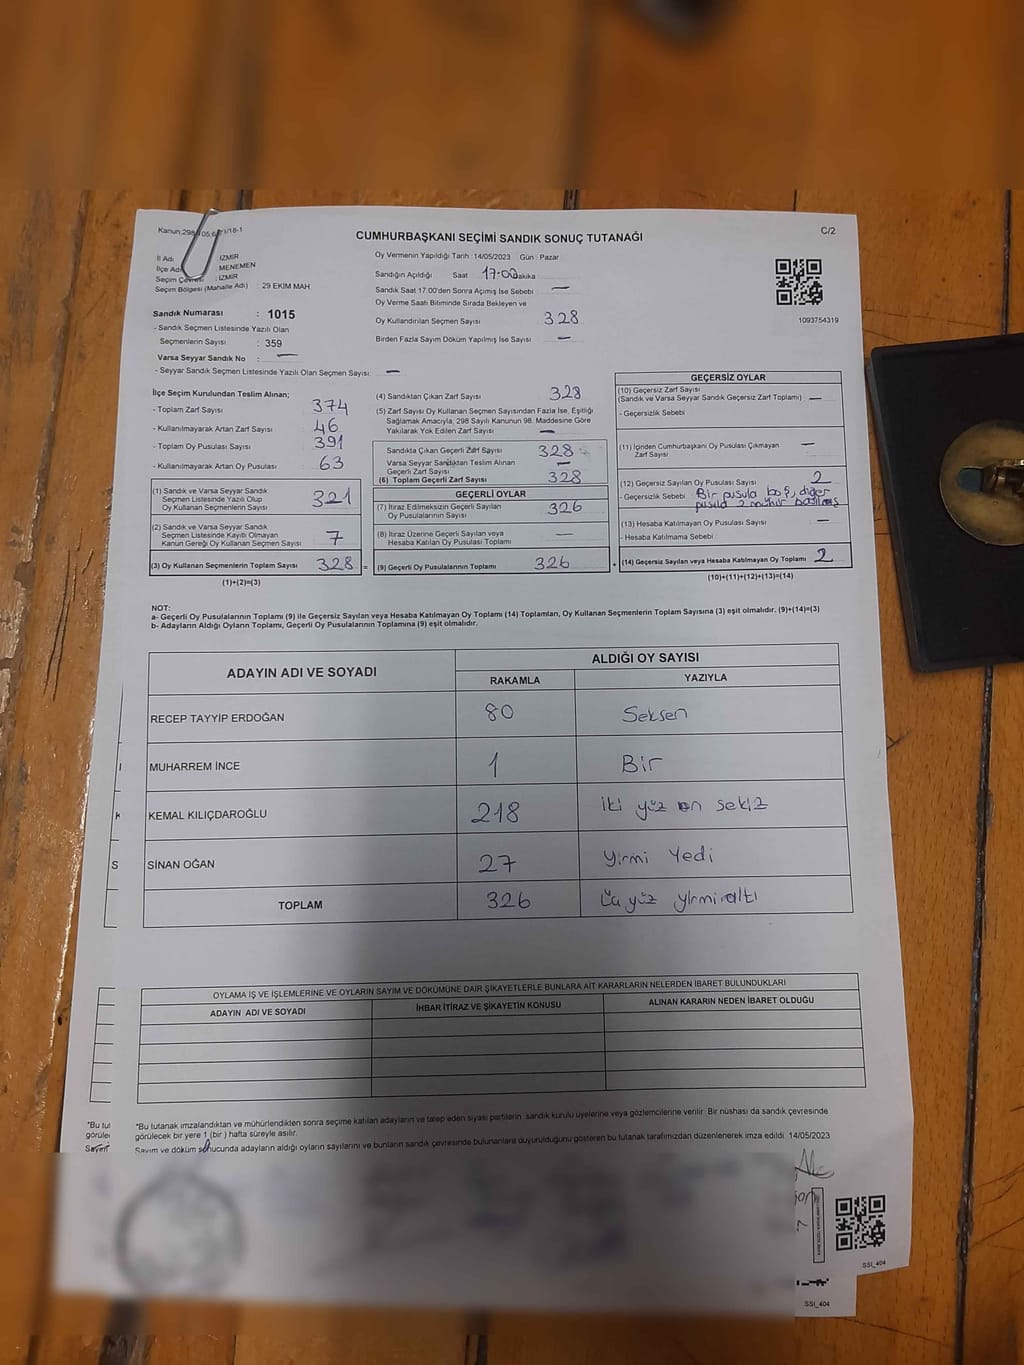 Kanun;298
/18-1
C/2
CUMHURBAŞKANI SEÇİMİ SANDIK SONUÇ TUTANAĞI
İl Adı : İZMİR
İlçe Adı MENEMEN
Seçim : İZMİR
Seçim Bölgesi (Mahalle Adı) : 29 EKİM MAH.
Sandık Numarası : 1015
- Sandık Seçmen Listesinde Yazılı Olan
Seçmenlerin Sayısı : 359
Varsa Seyyar Sandık No : —
- Seyyar Sandık Seçmen Listesinde Yazılı Olan Seçmen Sayısı: —
Oy Vermenin Yapıldığı Tarih :14/05/2023 Gün : Pazar
Sandığın Açıldığı Saat 17:00 Dakika
Sandık Saat 17.00'den Sonra Açımış İse Sebebi —
Oy Verme Saati Bitiminde Sırada Bekleyen ve
Oy Kullandırılan Seçmen Sayısı 328
Birden Fazla Sayım Döküm Yapılmış İse Sayısı —
1093754319
İlçe Seçim Kurulundan Teslim Alınan;
- Toplam Zarf Sayısı 374
- Kullanılmayarak Artan Zarf Sayısı 46
- Toplam Oy Pusulası Sayısı 391
- Kullanılmayarak Artan Oy Pusulası 63
(1) Sandık ve Varsa Seyyar Sandık
Seçmen Listesinde Yazılı Olup
Oy Kullanan Seçmenlerin Sayısı 321
(2) Sandık ve Varsa Seyyar Sandık
Seçmen Listesinde Kayıtlı Olmayan
Kanun Gereği Oy Kullanan Seçmen Sayısı 7
(3) Oy Kullanan Seçmenlerin Toplam Sayısı 328 =
(1)+(2)=(3)
(4) Sandıktan Çıkan Zarf Sayısı 328
(5) Zarf Sayısı Oy Kullanan Seçmen Sayısından Fazla İse, Eşitliği
Sağlamak Amacıyla, 298 Sayılı Kanunun 98. Maddesine Göre
Yakılarak Yok Edilen Zarf Sayısı —
Sandıkta Çıkan Geçerli Zarf Sayısı 328
Varsa Seyyar Sandıktan Teslim Alınan
Geçerli Zarf Sayısı —
(6) Toplam Geçerli Zarf Sayısı 328
GEÇERLİ OYLAR
(7) İtiraz Edilmeksizin Geçerli Sayılan
Oy Pusulalarının Sayısı 326
(8) İtiraz Üzerine Geçerli Sayılan veya
Hesaba Katılan Oy Pusulası Toplamı —
(9) Geçerli Oy Pusulalarının Toplamı 326 +
GEÇERSİZ OYLAR
(10) Geçersiz Zarf Sayısı
(Sandık ve Varsa Seyyar Sandık Geçersiz Zarf Toplamı) —
- Geçersizlik Sebebi
(11) İçinden Cumhurbaşkanı Oy Pusulası Çıkmayan
Zarf Sayısı —
(12) Geçersiz Sayılan Oy Pusulası Sayısı 2
- Geçersizlik Sebebi Bir pusula boş, diğer
pusula 2 mühür basılmış
(13) Hesaba Katılmayan Oy Pusulası Sayısı —
- Hesaba Katılmama Sebebi :
(14) Geçersiz Sayılan veya Hesaba Katılmayan Oy Toplamı 2
(10)+(11)+(12)+(13)=(14)
NOT:
a- Geçerli Oy Pusulalarının Toplamı (9) ile Geçersiz Sayılan veya Hesaba Katılmayan Oy Toplamı (14) Toplamları, Oy Kullanan Seçmenlerin Toplam Sayısına (3) eşit olmalıdır. (9)+(14)=(3)
b- Adayların Aldığı Oyların Toplamı, Geçerli Oy Pusulalarının Toplamına (9) eşit olmalıdır.
ADAYIN ADI VE SOYADI
ALDIĞI OY SAYISI
RAKAMLA YAZIYLA
RECEP TAYYİP ERDOĞAN 80 Seksen
MUHARREM İNCE 1 Bir
KEMAL KILIÇDAROĞLU 218 iki yüz on sekiz
SİNAN OĞAN 27 yirmi Yedi
TOPLAM 326 Üç yüz yirmi altı
OYLAMA İŞ VE İŞLEMLERİNE VE OYLARIN SAYIM VE DÖKÜMÜNE DAİR ŞİKAYETLERLE BUNLARA AİT KARARLARIN NELERDEN İBARET BULUNDUKLARI
ADAYIN ADI VE SOYADI
İHBAR İTİRAZ VE ŞİKAYETİN KONUSU
ALINAN KARARIN NEDEN İBARET OLDUĞU
*Bu tutanak imzalandıktan ve mühürlendikten sonra seçime katılan adayların ve talep eden siyasi partilerin sandık kurulu üyelerine veya gözlemcilerine verilir. Bir nüshası da sandık çevresinde
görülecek bir yere 1 (bir ) hafta süreyle asılır.
Sayım ve döküm sonucunda adayların aldığı oyların sayılarını ve bunların sandık çevresinde bulunanlara duyurulduğunu gösteren bu tutanak tarafımızdan düzenlenerek imza edildi. 14/05/2023
SSI_404
SSI_404